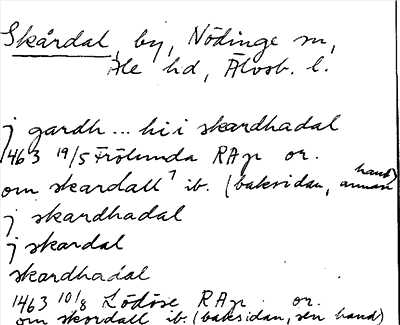 Skårdal, by, Nödinge sn,
Ale hd, Älvsb. l.
j gardh ... hi i skardhadal
1463 19/5 Frölunda RAp or.
om skardall⁷ ib. (baksidan, annan hand)
j skardhadal
j skardal
skardhadal
1463 10/8 Lödöse RAp or.
om skordall ib. (baksidan, sen hand)